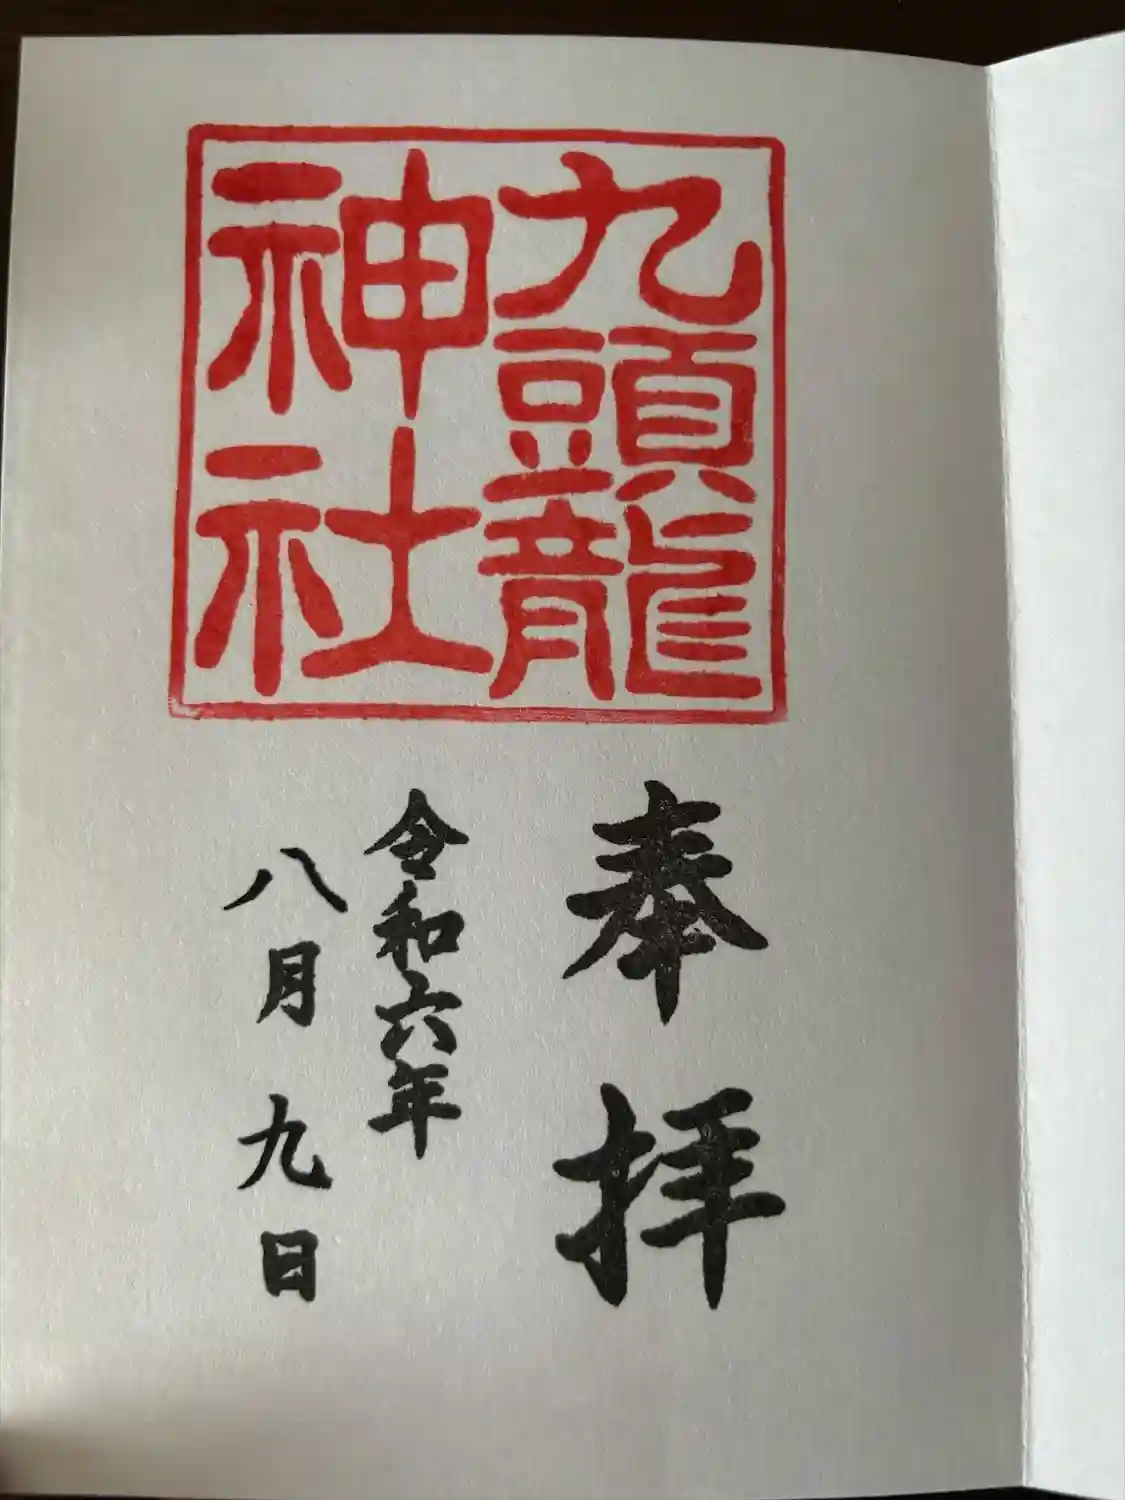 九頭龍
神社
奉拝
令和六年
八月九日